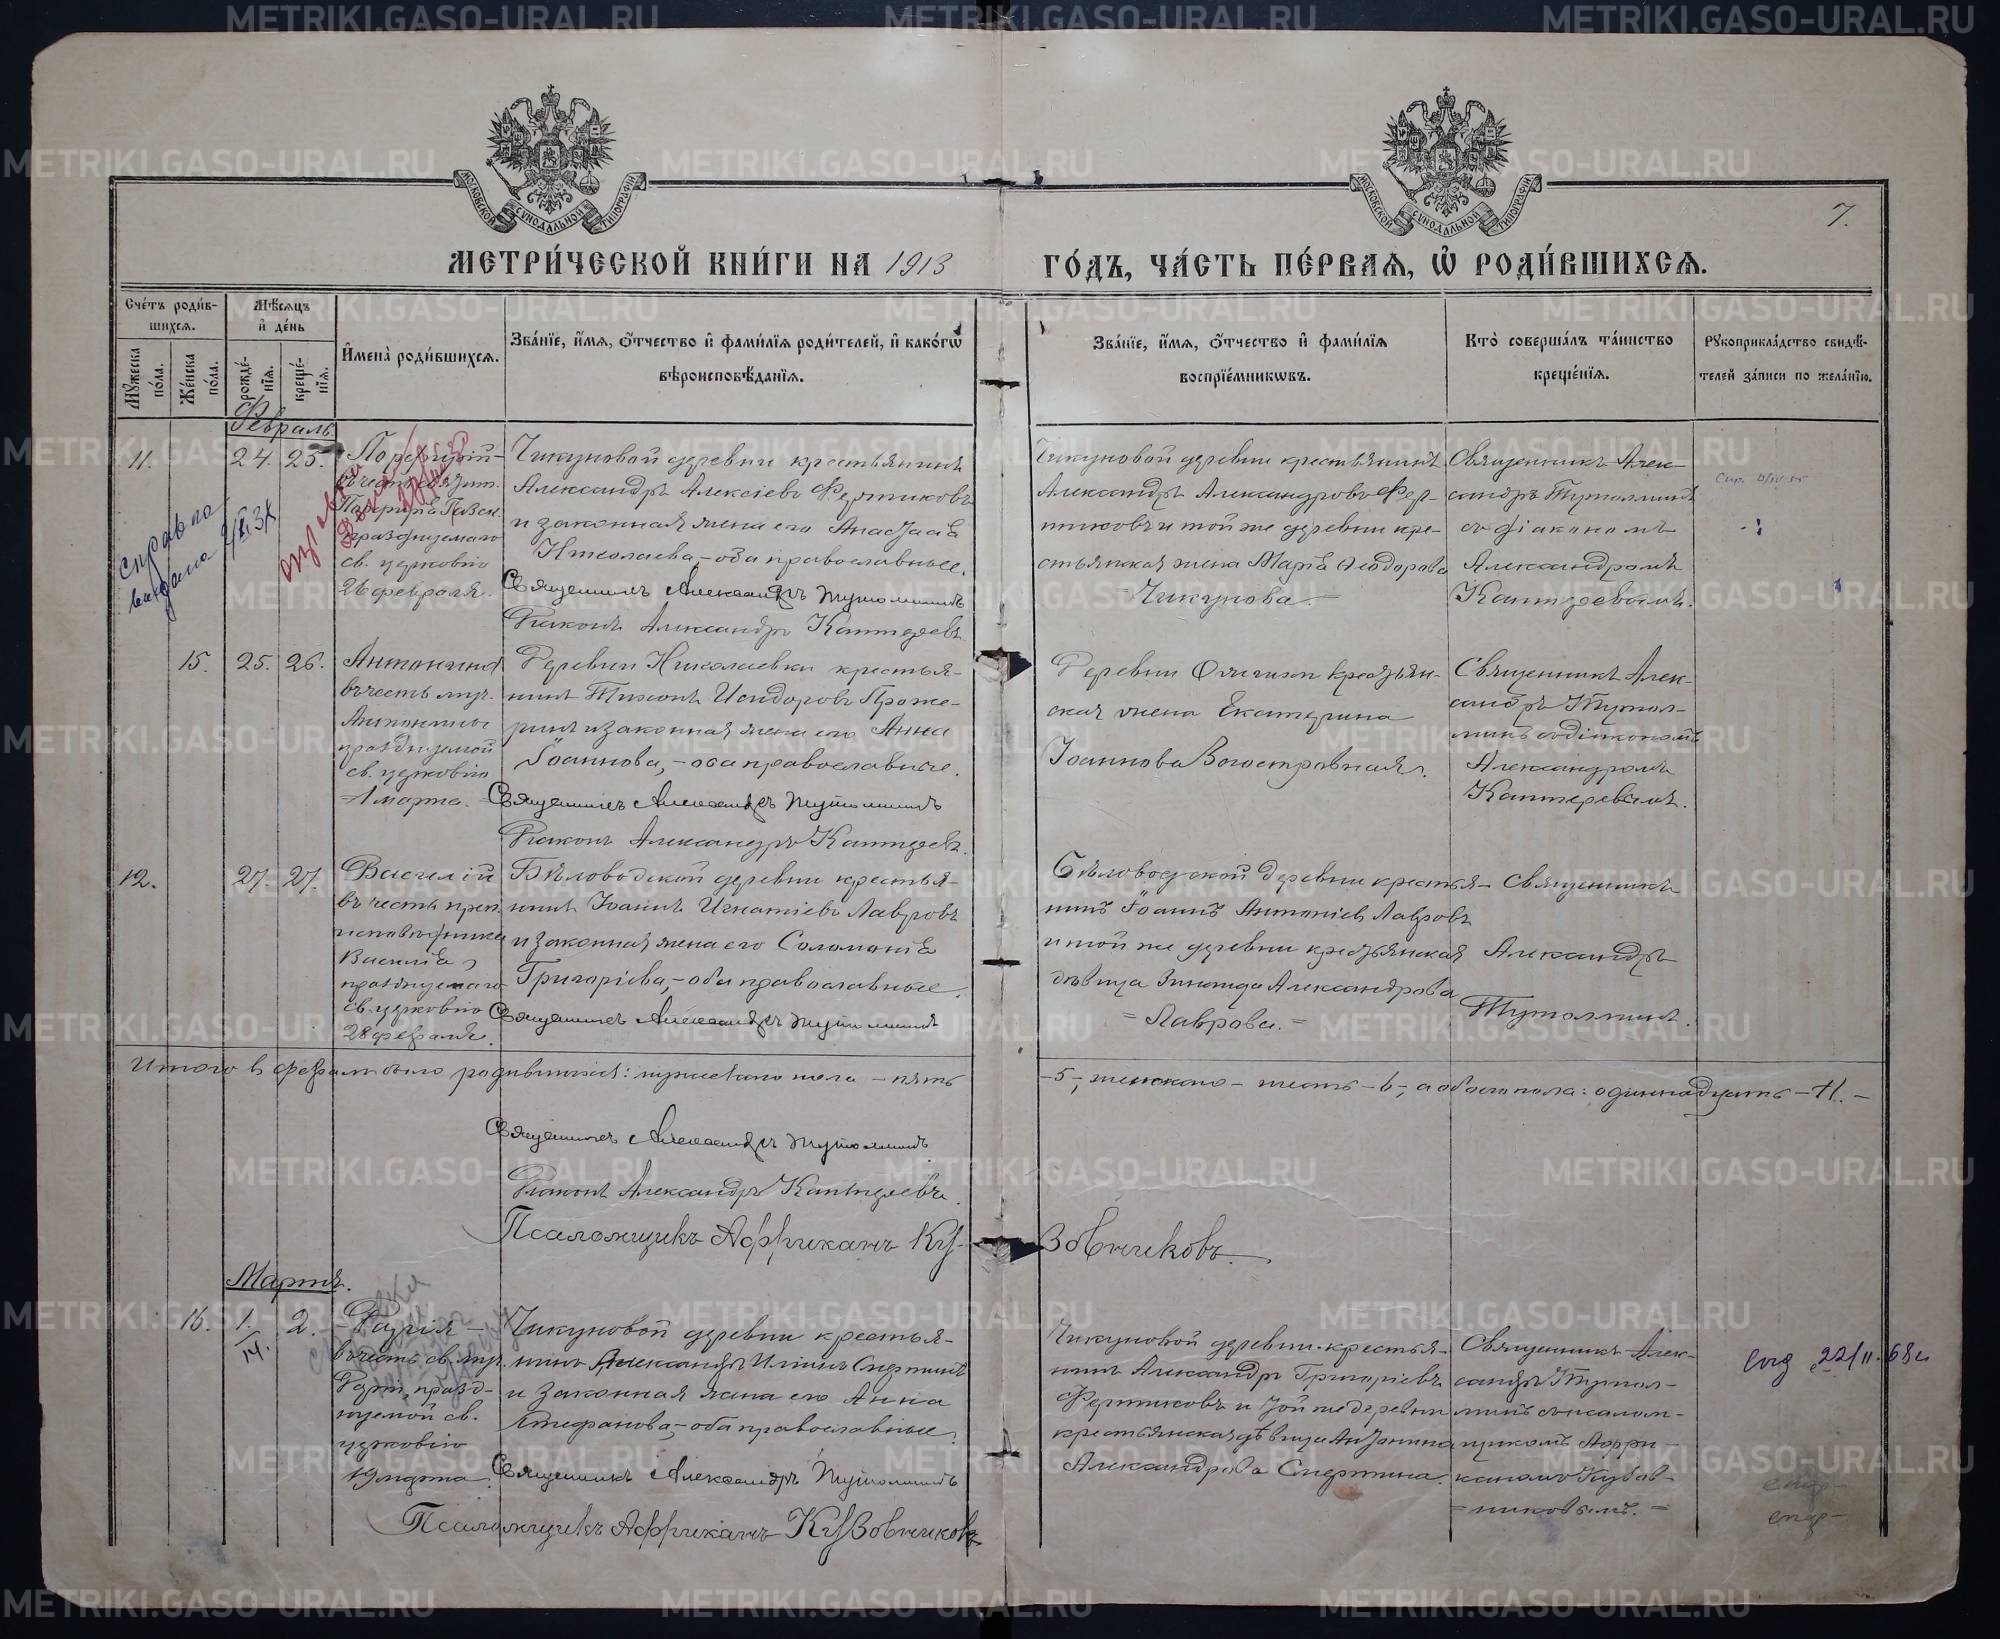 МЕТРИ́ЧЕСКОЙ КНИ́ГИ НА 1913
ГО́ДЪ, ЧА́СТЬ ПЕ́РВАѦ, Ѡ҆ РОДИ́ВШИХСѦ.
7.
МОСКОВСКОЙ СѴНОДАЛЬНОЙ ТИПОГРАФІИ
МОСКОВСКОЙ СѴНОДАЛЬНОЙ ТИПОГРАФІИ
Счётъ роди́вшихсѧ.
Мꙋ́жеска по́ла.
Же́нска по́ла.
Мѣ́сѧцъ и҆ де́нь
рожде́нїѧ.
креще́нїѧ.
И҆мена̀ роди́вшихсѧ.
Зва́нїе, и҆́мѧ, ѻ҆́тчество и҆ фами́лїѧ роди́телей, и҆ како́гѡ
вѣроисповѣ́данїѧ.
Зва́нїе, и҆́мѧ, ѻ҆́тчество и҆ фами́лїѧ
воспрїе́мникѡвъ.
Кто̀ соверша́лъ та́инство
креще́нїѧ.
Рꙋкоприкла́дство свидѣ́-
телей за́писи по жела́нїю.
Февраль
11.
24. 25.
Порфирій
въ честь
Порфирія Газск.
празднуемаго
св. церковію
26 февраля.
справка
выдана
Чикуновой деревни крестьянинъ
Александръ Алексіевъ Фертиковъ
и законная жена его Анастасія
Николаева, – оба православные.
Священникъ Александръ Тутолминъ
Діаконъ Александръ Каптеревъ
Чикуновой деревни крестьянинъ
Александръ Александровъ Фер-
тиковъ и той же деревни кре-
стьянская жена Марія Ѳеодорова
Чикунова.
Священникъ Алек-
сандръ Тутолминъ
съ діакономъ
Александромъ
Каптеревымъ.
15. 25. 26.
Антонина
въ честь муч.
Антонины
празднуемой
св. церковію
1 марта.
Деревни Николаевки крестья-
нинъ Тихонъ Исидоровъ Проже-
ринъ и законная жена его Анна
Іоаннова, – оба православные.
Священникъ Александръ Тутолминъ
Діаконъ Александръ Каптеревъ.
Деревни крестьян-
ская жена Екатерина
Іоаннова Вогостровная.
Священникъ Алек-
сандръ Тутол-
минъ съ діакономъ
Александромъ
Каптеревымъ.
12. 27. 27.
Василій
въ честь преп.
исповѣдника
Василія,
празднуемаго
св. церковію
28 февраля.
Бѣловодской деревни крестья-
нинъ Іоаннъ Игнатіевъ Лавровъ
и законная жена его Соломонія
Григоріева, – оба православные.
Священникъ Александръ Тутолминъ
Бѣловодской деревни крестья-
нинъ Іоаннъ Антоніевъ Лавровъ
и той же деревни крестьянская
дѣвица Зинаида Александрова
= Лаврова. =
Священникъ
Александръ
Тутолминъ.
Итого въ февралѣ было родившихся: мужескаго пола – пять
–5–, женскаго – шесть –6–, а обоего пола: одиннадцать –11.–
Священникъ Александръ Тутолминъ
Діаконъ Александръ Каптеревъ.
Псаломщикъ Африканъ Ку-
зовниковъ.
Мартъ.
16. 1. 2.
14.
– Дарія –
въ честь св. муч.
Даріи, празд-
нуемой св.
церковію
19 марта.
Чикуновой деревни крестья-
нинъ Александръ Илiинъ Смертинъ
и законная жена его Анна
Стефанова, – оба православные.
Священникъ Александръ Тутолминъ
Псаломщикъ Африканъ Кузовниковъ
Чикуновой деревни крестья-
нинъ Александръ Григоріевъ
Фертиковъ и той же деревни
крестьянская дѣвица Антонина
Александрова Смертина.
Священникъ Алек-
сандръ Тутол-
минъ съ псалом-
щикомъ Афри-
каномъ Кузов-
= никовымъ. =
22/II.68г
METRIKI.GASO-URAL.RU